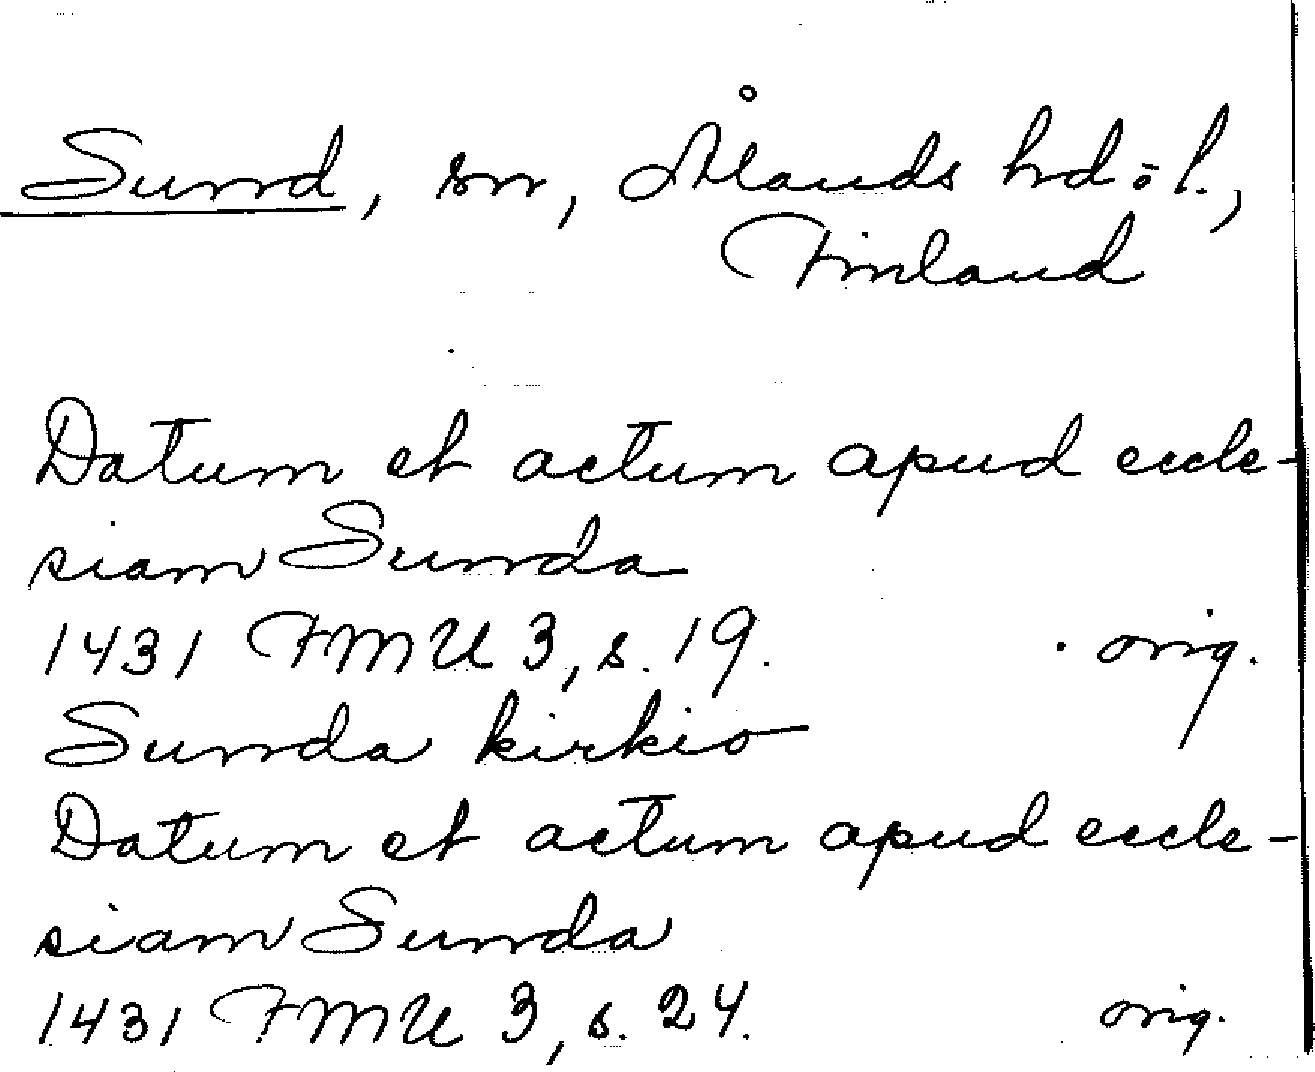 Sund, sn, Ålands hd: l.,
Finland
Datum et actum apud eccle-
siam Sunda
1431 FMU 3, s. 19. orig.
Sunda kirkio
Datum et actum apud eccle-
siam Sunda
1431 FMU 3, s. 24. orig.